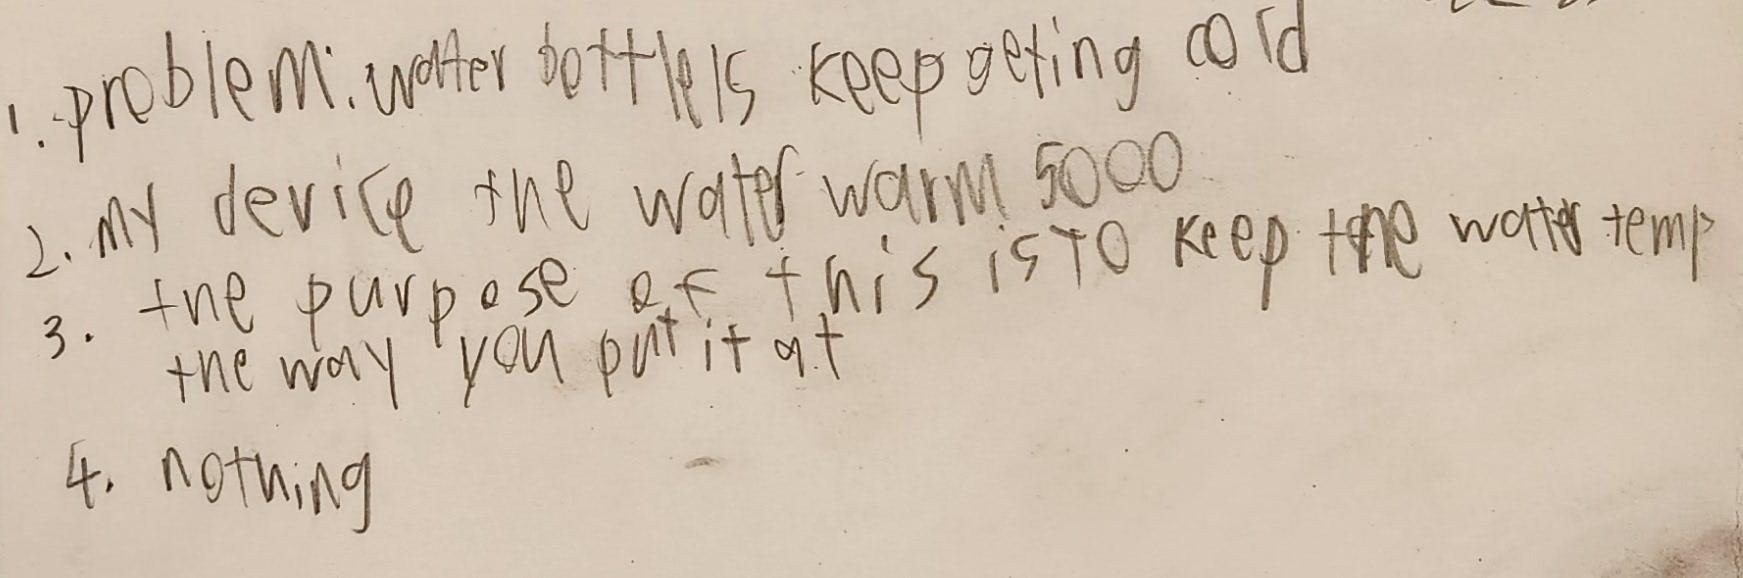 1. problem: water bottles keep geting cold
2. my device the water warm 5000
3. the purpose of this is TO keep the water temp
the way you put it at
4. nothing